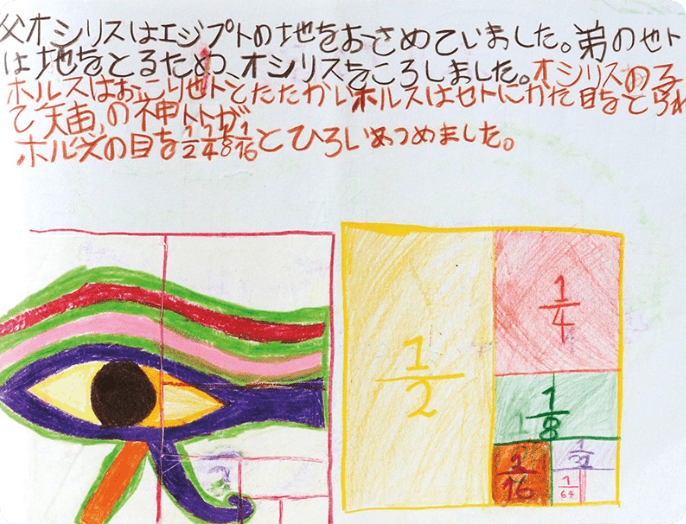 父オシリスはエジプトの地をおさめていました。弟のセト
は地をとるため、オシリスをころしました。オシリスの子
ホルスはおこりセトとたたかいホルスはセトにかた目をとられ
て知恵の神トトが
ホルスの目を1/2 1/4 1/8 1/16とひろいあつめました。
1/2
1/4
1/8
1/16
1/32
1/64